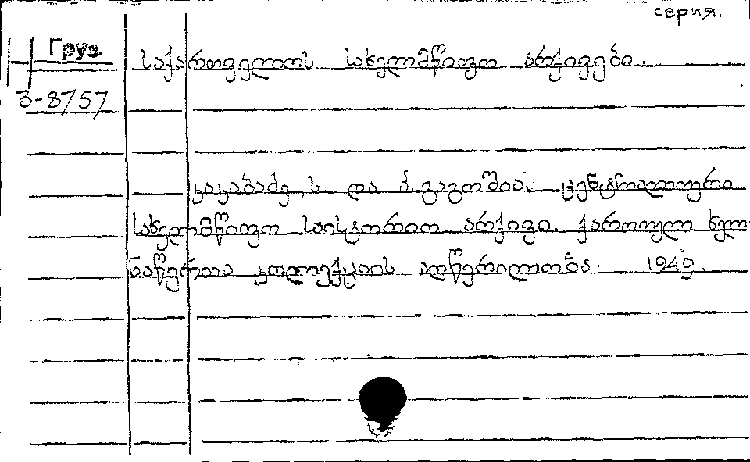 серия.
Груз.
საქართველოს სახელმწიფო არქივები.
3-8757
კაკაბაძე, ს და პ. გაგოშია. ცენტრალური
სახელმწიფო საისტორიო არქივი. ქართულ ხელ
ნაწერთა კოლექციის აღწერილობა. 1949.